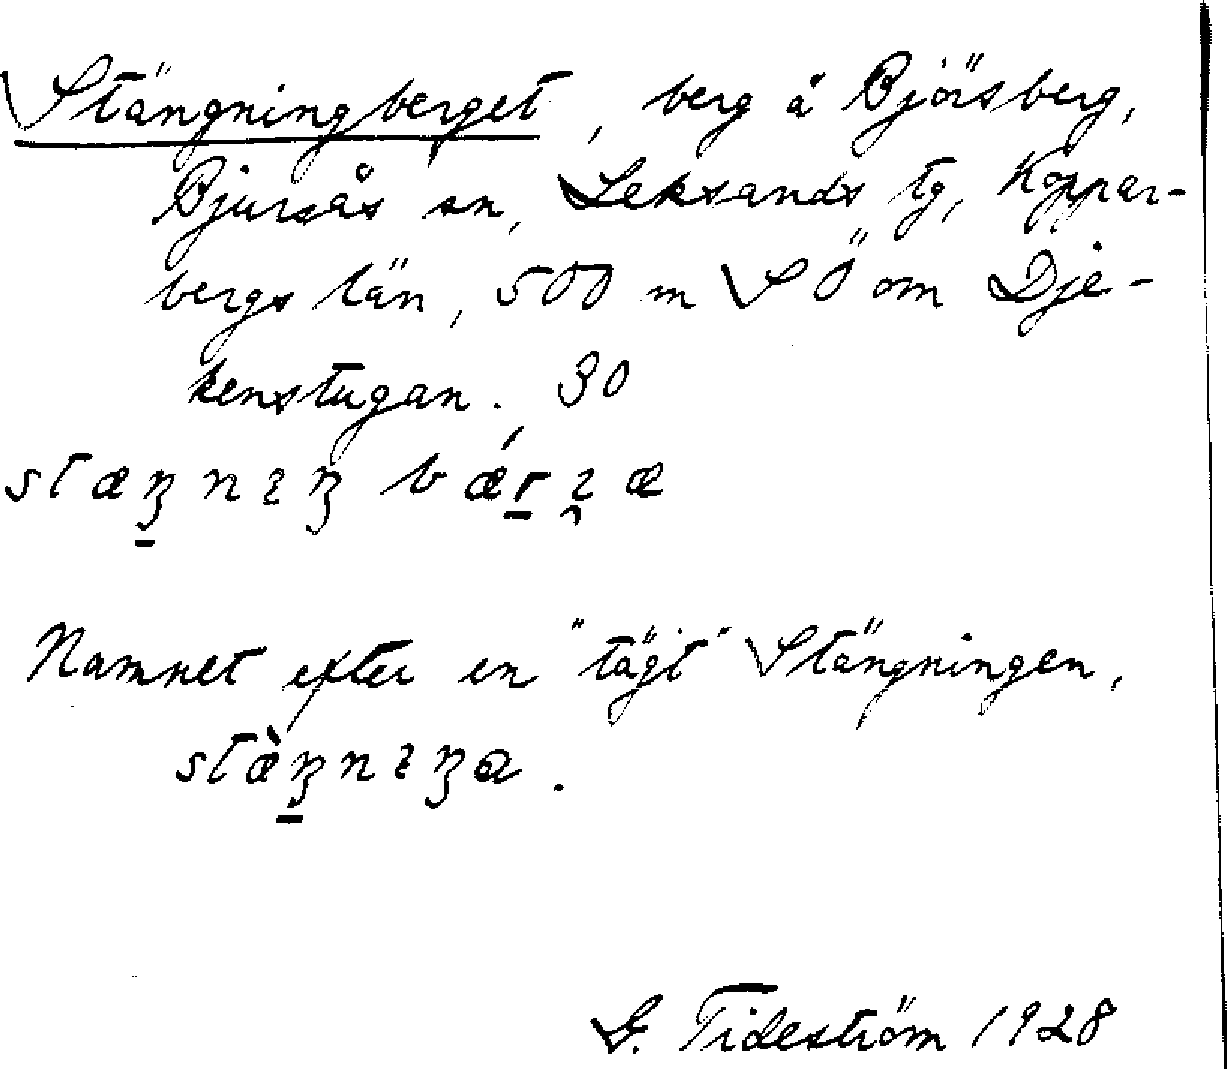 Stängningberget, berg å Björsberg,
Bjursås sn, Leksands tg, Koppar-
bergs län, 500 m SÖ om Dje-
kenstugan. 30
Namnet efter en "tägt" Stängningen,
G. Tideström 1928